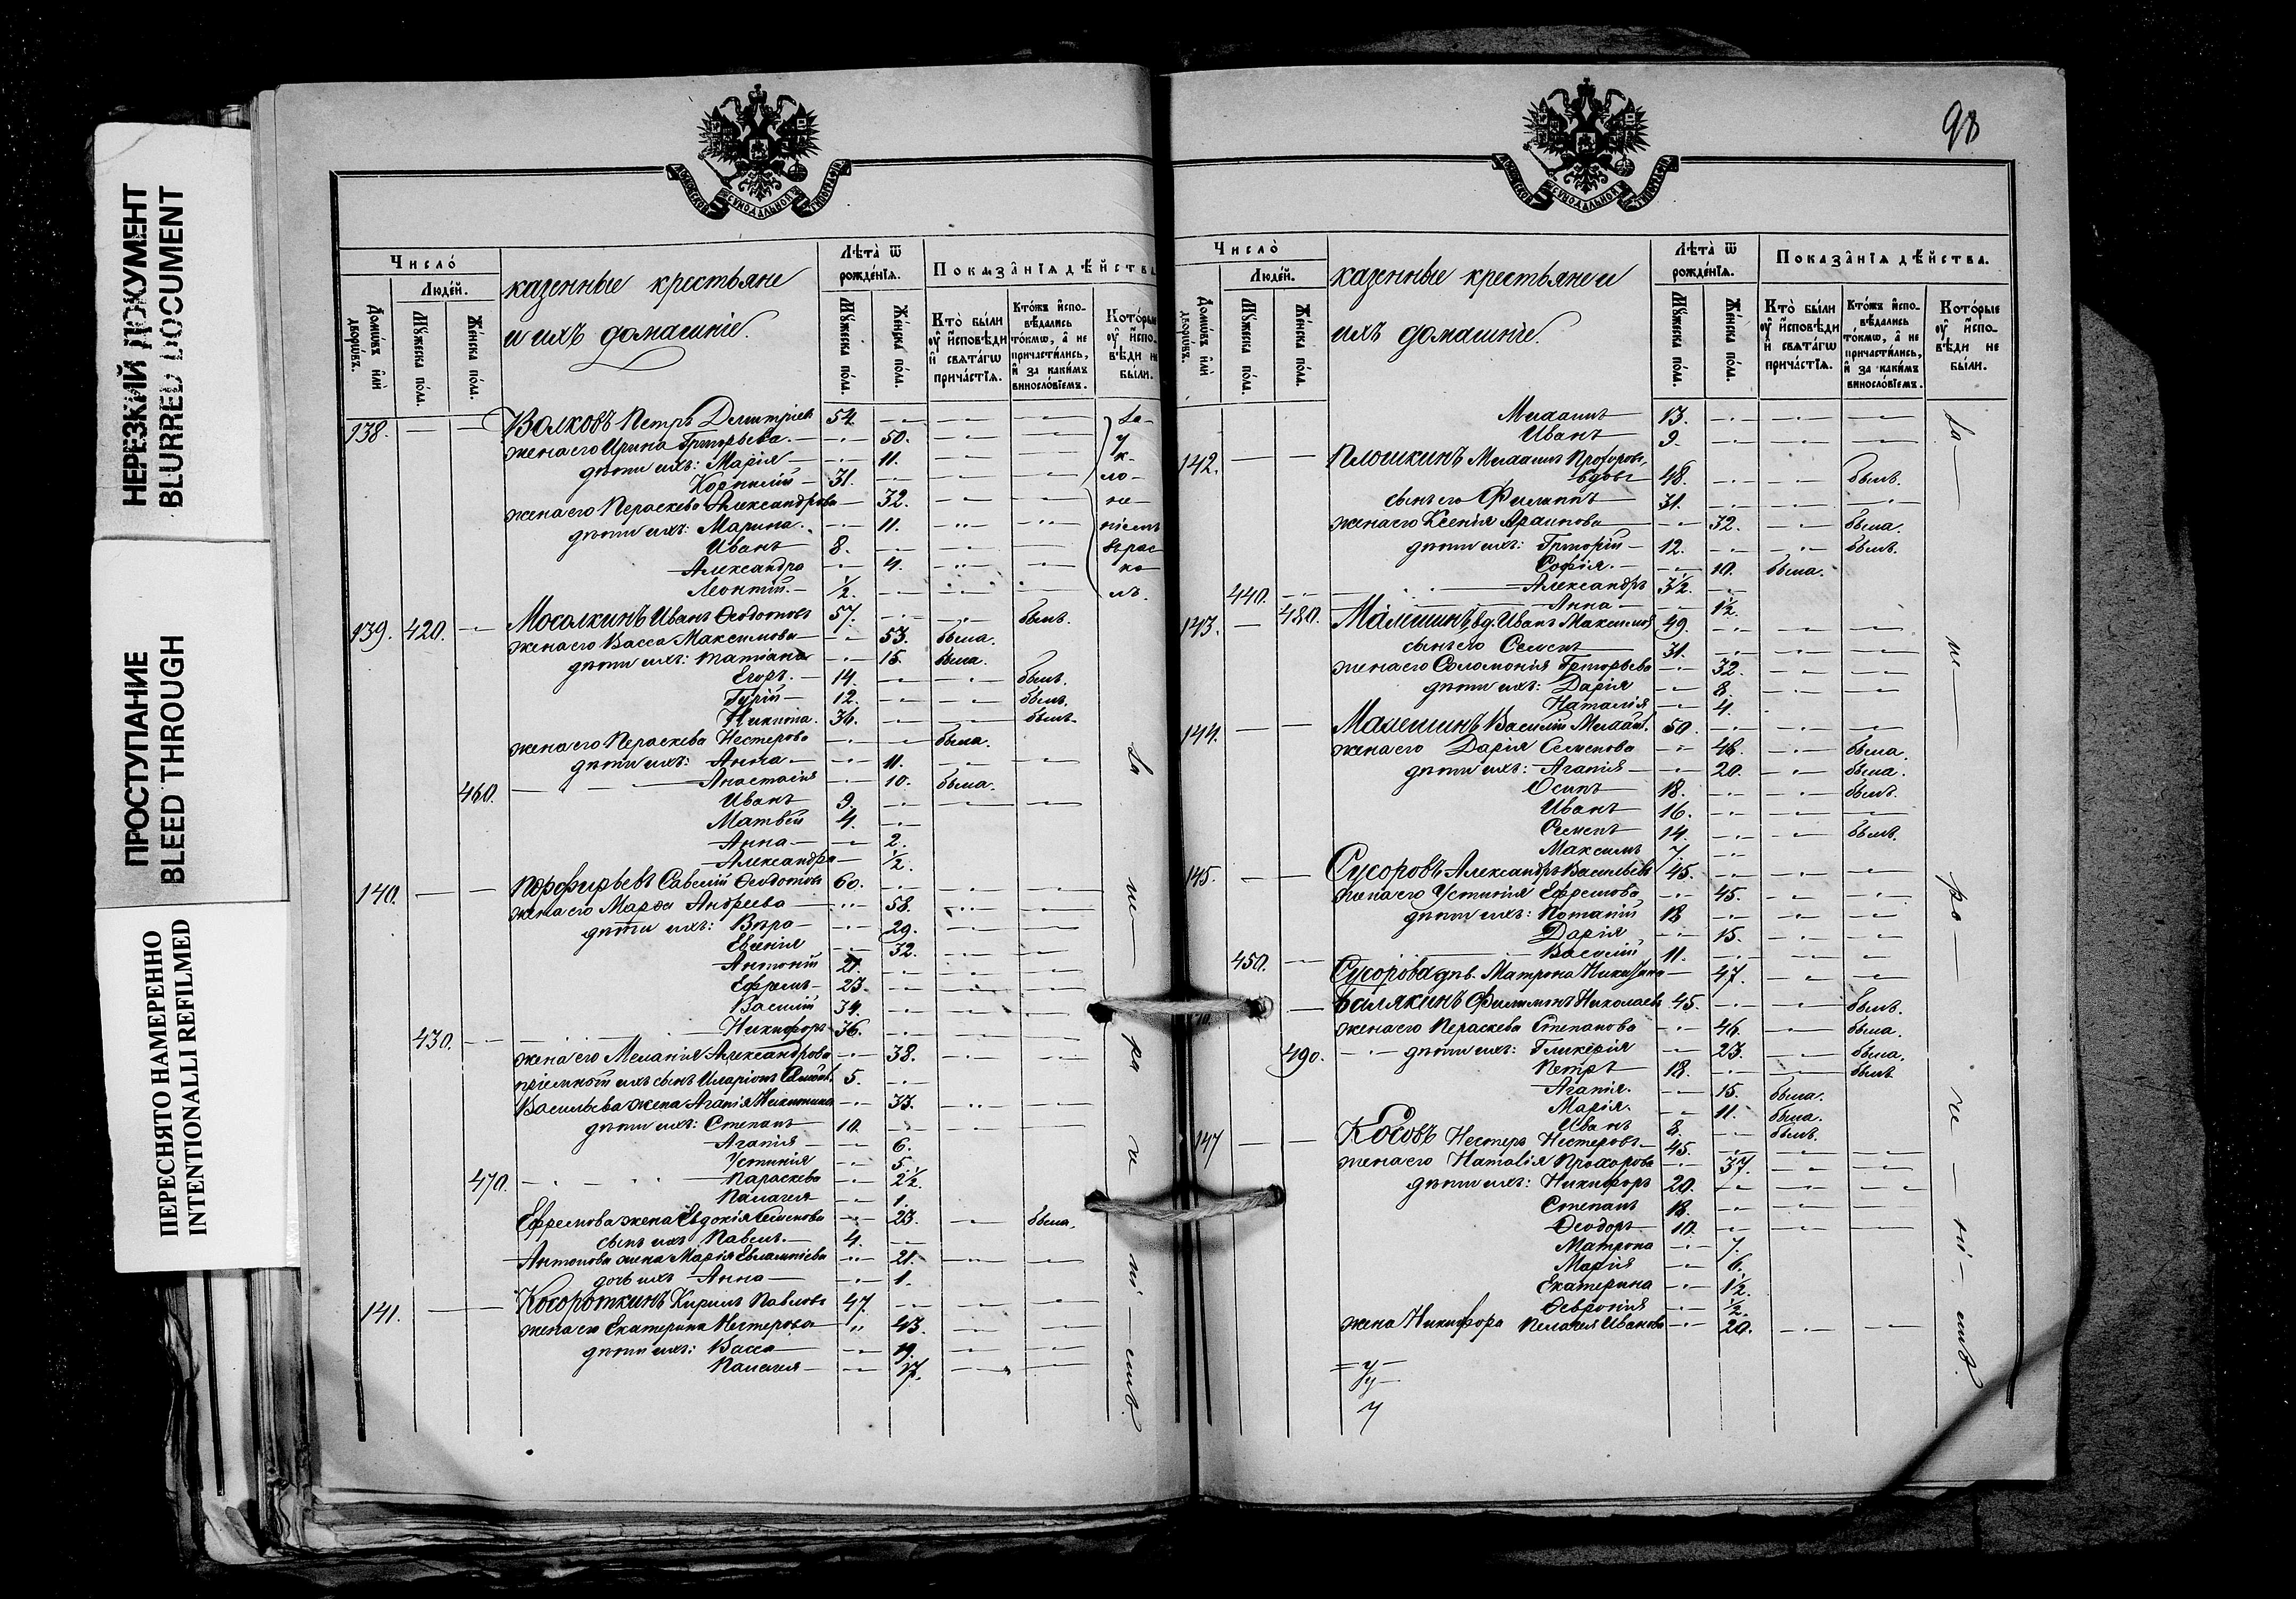 НЕРЕЗКИЙ ДОКУМЕНТ
BLURRED DOCUMENT
ПРОСТУПАНИЕ
BLEED THROUGH
ПЕРЕСНЯТО НАМЕРЕННО
INTENTIONALLI REFILMED
МОСКОВСКОЙ СѴНОДАЛЬНОЙ ТИПОГРАФІИ
Число̀
Людéй.
Домѡ́въ и҆лѝ дворѡ́въ.
Мꙋ́жеска по́ла.
Же́нска по́ла.
казенные крестьяне
и ихъ домашніе.
Лѣ́та ѿ рожде́нїѧ.
Мꙋ́жеска по́ла.
Же́нска по́ла.
Показа̑нїѧ дѣ́йства
Кто̀ бы́ли ᲂу҆ и҆сповѣ́ди и҆ свѧта́гѡ прича́стїѧ.
Кто́жъ и҆спо-вѣ́дались то́кмѡ, а҆ не причасти́лись, и҆ за каки́мъ винословїемъ.
Кото́рые ᲂу҆ и҆спо-вѣ́ди не бы́ли.
138. — — Волковъ Петръ Димитріевъ 54. — — — За-
жена его Ирина Григорьева. — 50. — — у
дѣти ихъ: Марія — 11. — — к-
Корнилій — 31. — — — ло-
жена его Пераскева Александрова — 32. — — не-
дѣти ихъ: Марина. — 11. — — ніемъ
Иванъ 8. — — — въ рас
Александра — 4. — — ко
Леонтій. — ½. — — — лъ.
139. 420. — Мосолкинъ Иванъ Ѳеодотовъ 57. — — былъ.
жена его Васса Максимова — 53. была.
дѣти ихъ: Татіана — 15. была.
Егоръ. — 14. — — былъ.
Гурій — 12. — — былъ.
Никита. 36. — — былъ.
жена его Пераскева Нестерова — — была.
дѣти ихъ: Анна — 11. — —
460. — Анастасія — 10. была.
Иванъ 9. — — —
Матвѣй 4. —
Анна — 2.
Александра — ½.
140. — — Порфирьевъ Савелій Ѳеодотовъ 60. — — —
жена его Марѳа Андреева — 58. — —
дѣти ихъ: Вѣра — 29. — —
Евгенія — 32. — —
Антоній 21. — — —
Ефремъ — 23. — — —
Василій 34. — — —
430. — Никифоръ 36. — — —
жена его Меланія Александрова — 38. — —
пріемный ихъ сынъ Иларіонъ 5. —
Васильева жена Агапія Никитина — 33. — —
дѣти ихъ: Степанъ 10. — — —
Агапія — 6.
Устинія — 5.
470. — Параскева — 2½.
Палагея — 1.
Ефремова жена Евдокія Семенова — 23. — была.
сынъ ихъ Павелъ. — 4. —
Антонова жена Марія Евлампіева — 21. — —
дочь ихъ Анна — 1.
141. — — Косороткинъ Кирилъ Павловъ 47. — — —
жена его Екатерина Нестерова — 43. — —
дѣти ихъ: Васса — 19. — —
Палагея — 17. — —
За — не — ра — че — ні — емъ
98
МОСКОВСКОЙ СѴНОДАЛЬНОЙ ТИПОГРАФІИ
Число̀
Людéй.
Домѡ́въ и҆лѝ дворѡ́въ.
Мꙋ́жеска по́ла.
Же́нска по́ла.
казенные крестьяне и
ихъ домашніе.
Лѣ́та ѿ рожде́нїѧ.
Мꙋ́жеска по́ла.
Же́нска по́ла.
Показа̑нїѧ дѣ́йства.
Кто̀ бы́ли ᲂу҆ и҆сповѣ́ди и҆ свѧта́гѡ прича́стїѧ.
Кто́жъ и҆спо-вѣ́дались то́кмѡ, а҆ не причасти́лись, и҆ за каки́мъ винословїемъ.
Кото́рые ᲂу҆ и҆спо-вѣ́ди не бы́ли.
Михаилъ 13. — — —
Иванъ 9. — — —
142. — — Плошкинъ Михаилъ Прохоровъ,
вдовъ 48. — — былъ.
сынъ его Филиппъ 31. — — —
жена его Ксенія Архипова — 32. — была.
дѣти ихъ: Григорій — 12. — — былъ.
Софія. — 10. была.
440. — Александръ 3½. —
480. Анна — 1½.
143. — Малешинъ, вд. Иванъ Максимов 49. — — —
сынъ его Семенъ 31. — — —
жена его Соломонія Григорьева — 32. — —
дѣти ихъ: Дарія — 8. — —
Наталія — 4.
144. — — Малешинъ Василій Михайл. 50. — — —
жена его Дарія Семенова — 48. — была.
дѣти ихъ: Агапія — 20. — была.
Осипъ 18. — — былъ.
Иванъ 16. — — —
Семенъ 14. — — былъ.
Максимъ 7. —
145. — — Сусоровъ Александръ Васильевъ 45. — — —
жена его Устинія Ефремова — 45. — —
дѣти ихъ: Потапій 18 — — —
Дарія — 15. — —
450. — Василій 11. — — —
Сусорова дѣв. Матрона Никитина — 47. — —
— Билякинъ Филимонъ Николаевъ 45. — — былъ.
жена его Пераскева Степанова — 46. — была.
490. — дѣти ихъ: Гликерія — 23. — была.
Петръ 18. — — былъ
Агапія. — 15. была.
Марія. — 11. была.
Иванъ 8. — былъ.
147 — — Косовъ Нестеръ Нестеровъ — 45. — — —
жена его Наталія Прохорова — 37. — —
дѣти ихъ: Никифоръ 20. — — —
Степанъ 18. — — —
Ѳеодоръ 10. — — —
Матрона — 7.
Марія — 6.
Екатерина — 1½.
Ѳевронія — ½.
жена Никифора Пелагея Иванова — 20. — —
За — не — ра — че — ні — емъ